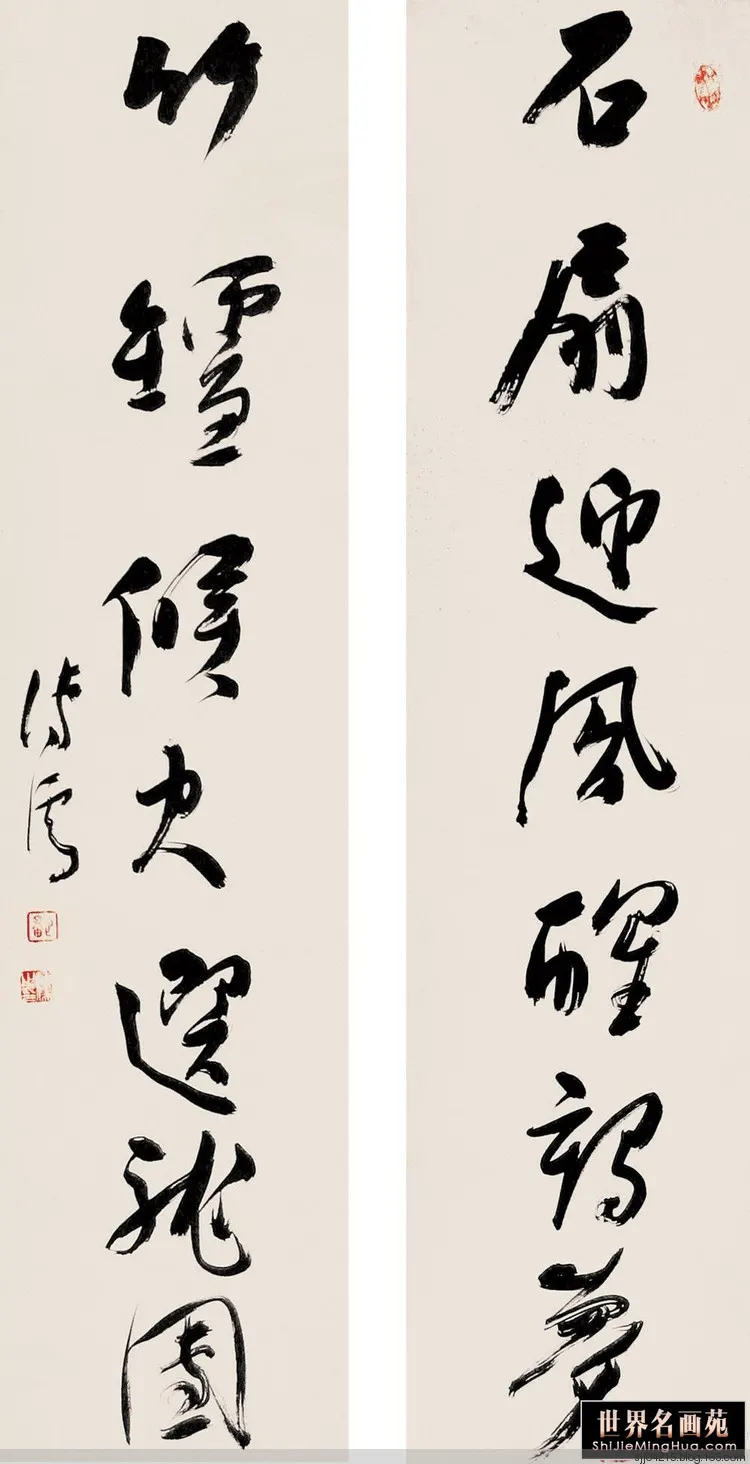 石扇迎風醒鶴夢
竹罏候火選龍團
溥儒
世界名画苑
ShiJieMingHua.com